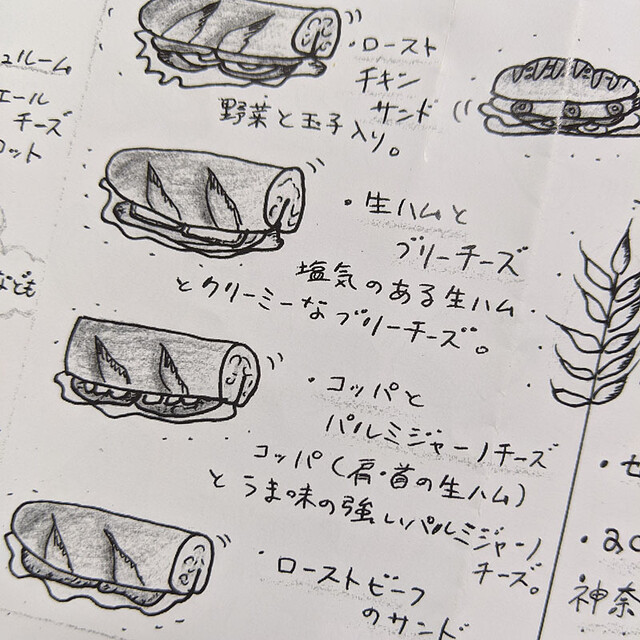 ・ロースト
チキン
サンド
野菜と玉子入り。
・生ハムと
ブリーチーズ
塩気のある生ハム
とクリーミーなブリーチーズ。
・コッパと
パルミジャーノチーズ
コッパ(肩・首の生ハム)
とうま味の強いパルミジャーノ
チーズ。
・ローストビーフ
のサンド
ュルーム
エール
チーズ
ロット
なども
・セ
神奈